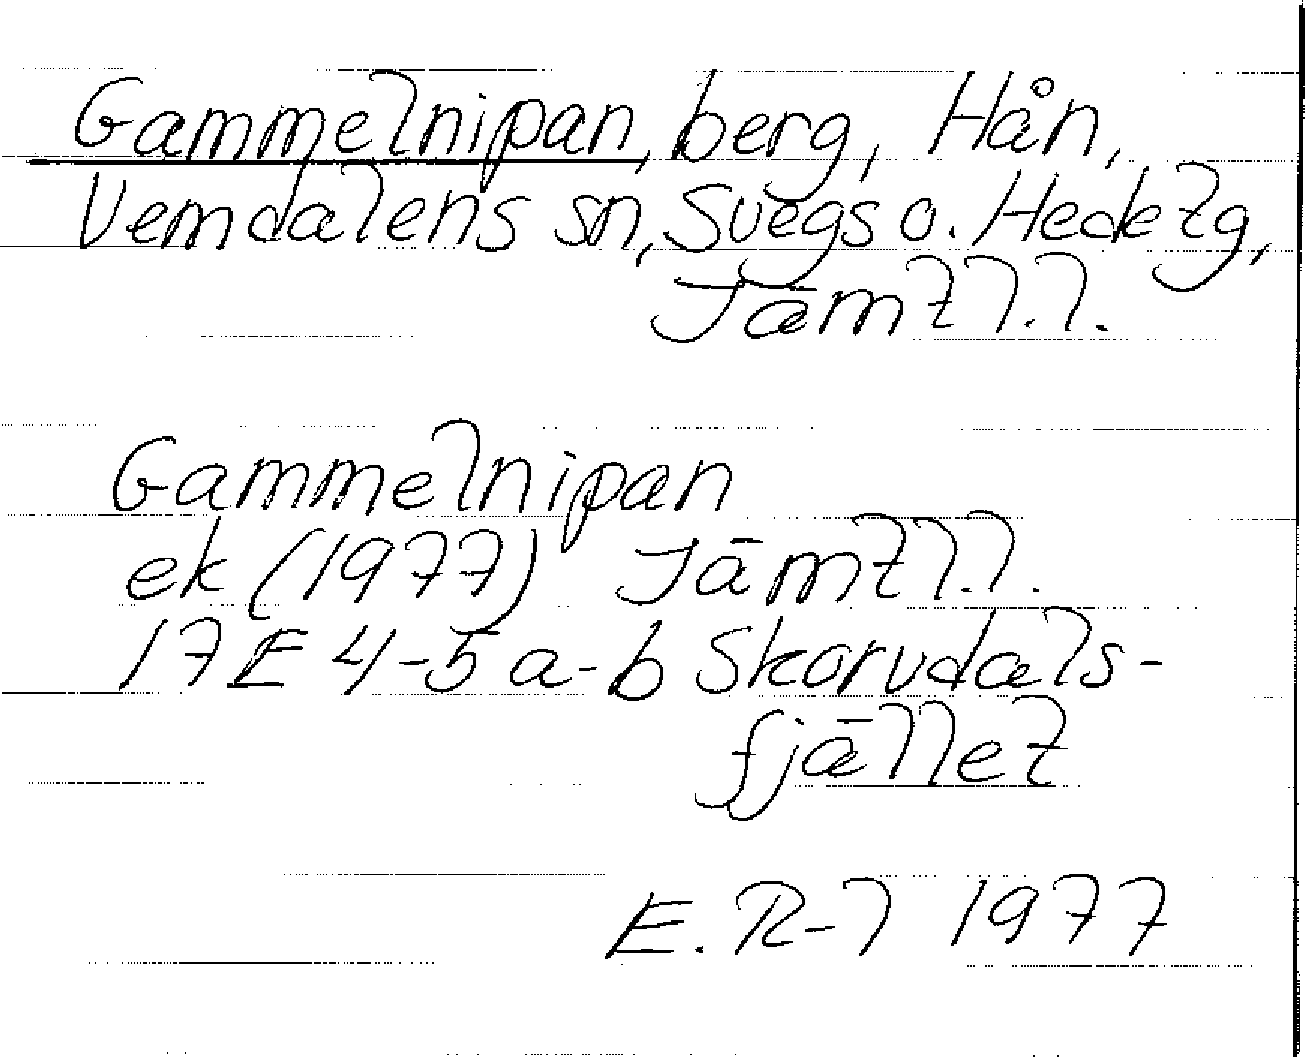 Gammelnipan, berg, Hån,
Vemdalens sn, Svegs o. Hede tg,
Jämtl. l.
Gammelnipan
ek (1977) Jämtl. l.
17E 4-5 a-b Skorvdals-
fjället
E. R-l 1977